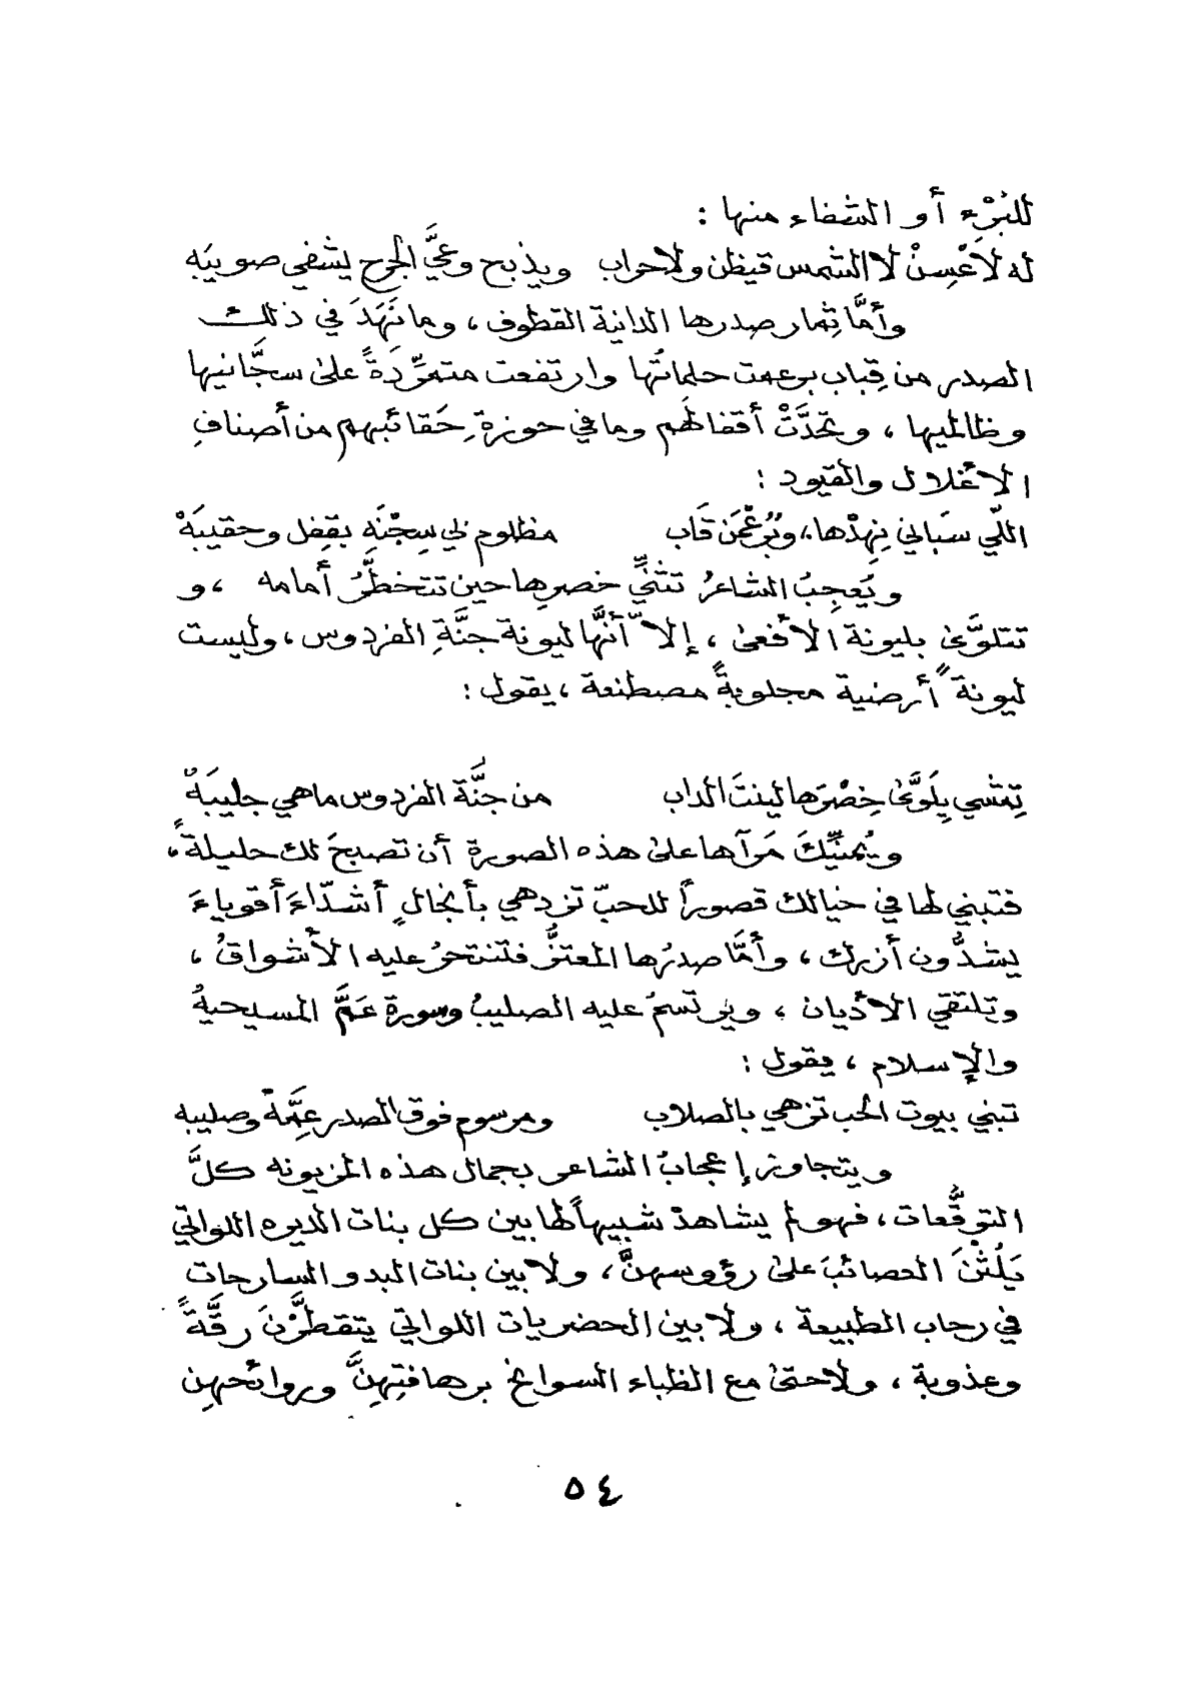 للبُرْءِ أو الشفاء منها :
له لاَعْسِنْ لا الشمس قيظن ولا حراب ويذبح وعيَّ الجرح يشفي صويبَه
وأمَّا ثِمار صدرها الدانية القطوف ، وما نَهَدَ في ذلك
الصدر من قِباب برعمت حلماتُها وارتفعت متمرِّدَةً على سجَّانيها
وظالميها ، وتحدَّتْ أقفالَهم وما في حوزةِ حَقائبهم من أصنافِ
الأغلال والقيود :
اللّي سَباني نِهِدْها، وبُرعْمَن قَاب مظلوم لي سِجْنَهِ بقفِل وحقيبَهْ
ويُعجِبُ الشاعرُ تثنِّي خصرِها حين تتخطَّرُ أمامه ، و
تتلوَّى بليونة الأفعى ، إلاّ أنَّها ليونة جنَّةِ الفردوس ، وليست
ليونةً أرضية مجلوبةً مصطنعة ، يقول :
تِمشي يِلَوَّى خِصْرَها لينتَ الداب من جنَّة الفردوس ما هي جليبَهْ
ويُمنِّيكَ مَرآها على هذه الصورة أن تصبحَ لك حليلةً ،
فتبني لها في خيالك قصوراً للحبّ تزدهي بأنجالٍ أشدّاءَ أقوياءَ
يشدُّون أزرك ، وأمَّا صدرُها المعتزُّ فتنتحرُ عليه الأشواقُ ،
وتلتقي الأديان ، ويرتسمُ عليه الصليبُ وسورة عَمَّ المسيحيةُ
والإسلام ، يقول :
تبني بيوت الحب تزهي بالصلاب ومرسوم فوق الصدر عِمَّهْ وصليبه
ويتجاوز إعجابُ الشاعر بجمال هذه المزيونه كلَّ
التوقُّعات ، فهو لم يشاهدْ شبيهاً لها بين كل بنات الديره اللواتي
يَلُثْنَ العصائبَ على رؤوسهنَّ ، ولا بين بنات البدو السارحات
في رحاب الطبيعة ، ولا بين الحضريات اللواتي يتقطَّرْنَ رقَّةً
وعذوبة ، ولا حتى مع الظباء السوانح برهافتِهِنَّ وروائحهِن
٥٤